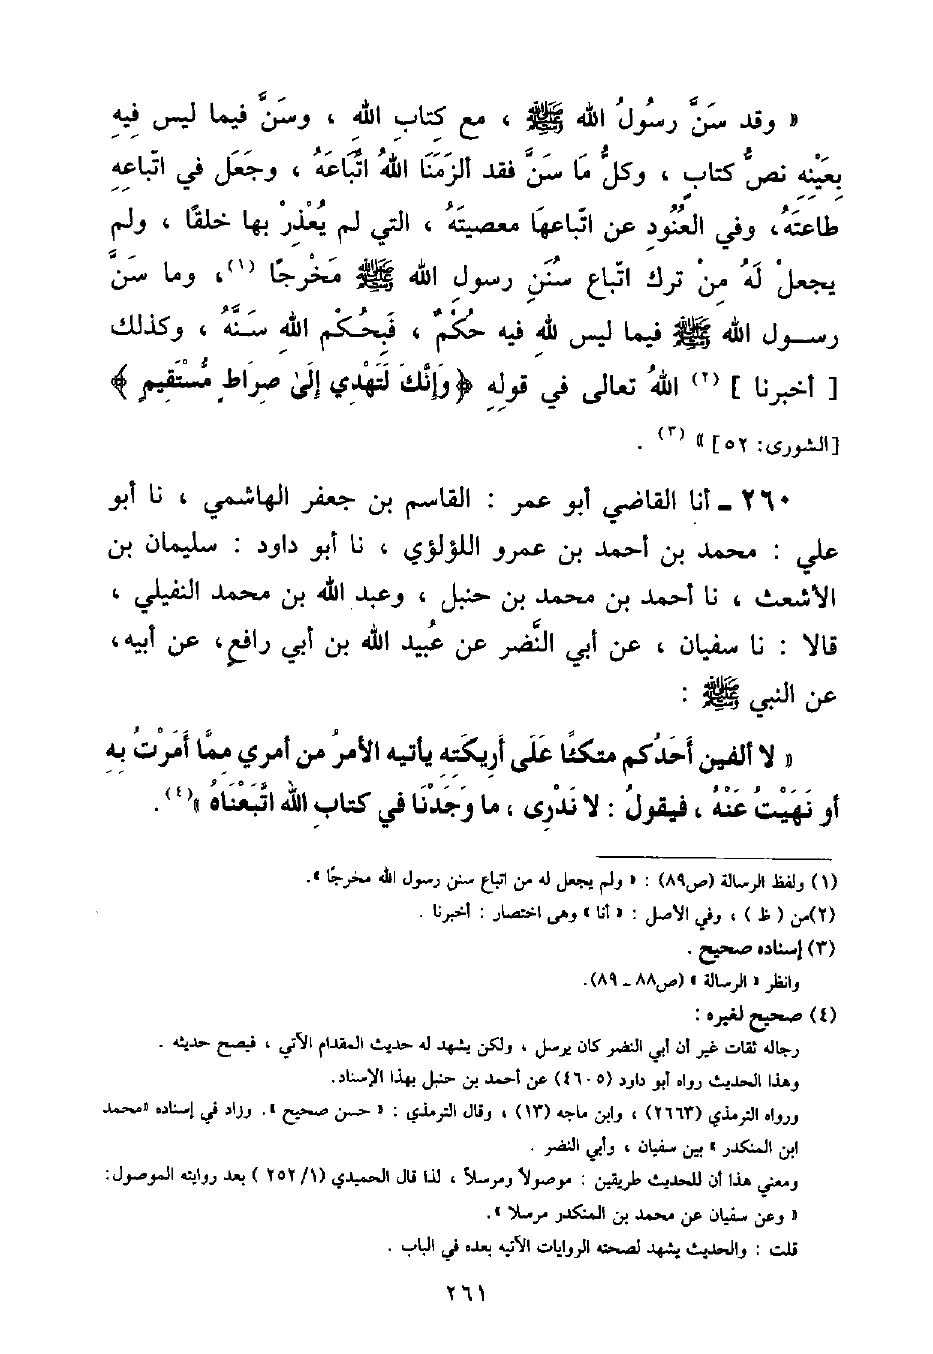 « وقد سَنَّ رسُولُ الله ﷺ ، مع كِتابِ اللهِ ، وسَنَّ فيما ليس فِيهِ
بِعَيْنِهِ نصُّ كتابٍ ، وكلُّ مَا سَنَّ فقد ألزَمَنَا اللهُ اتِّبَاعَهُ ، وجَعَل في اتّباعِهِ
طاعتَهُ، وفي العُنُودِ عن اتّباعِهَا معصيتَهُ ، التي لم يُعْذِرْ بها خلقًا ، ولم
يجعلْ لَهُ مِنْ ترك اتّباعِ سُنَنِ رسولِ الله ﷺ مَخْرجًا (١)، وما سَنَّ
رسـول الله ﷺ فيما ليس للهِ فيه حُكْمٌ ، فَبِحُكْمِ اللهِ سَنَّهُ ، وكذلك
[ أخبرنا ] (٢) اللهُ تعالى في قولِهِ ﴿ وَإِنَّكَ لَتَهْدِي إِلَىٰ صِرَاطٍ مُّسْتَقِيمٍ ﴾
[الشورى: ٥٢] » (٣) .
٢٦٠ ـ أنا القاضي أبو عمر : القاسم بن جعفر الهاشمي ، نا أبو
علي : محمد بن أحمد بن عمرو اللؤلؤي ، نا أبو داود : سليمان بن
الأشعث ، نا أحمد بن محمد بن حنبل ، وعبد الله بن محمد النفيلي ،
قالا : نا سفيان ، عن أبي النَّضر عن عُبيد الله بن أبي رافعٍ، عن أبيه،
عن النبي ﷺ :
« لا ألفين أَحَدُكم متكئًا عَلَى أَريكَتِه يأتيه الأمرُ من أمري ممَّا أمَرْتُ بِهِ
أو نَهَيْتُ عَنْهُ ، فيقولُ : لا نَدْرى ، ما وَجَدْنَا في كتاب الله اتَّبَعْنَاهُ »(٤).
(١) ولفظ الرسالة (ص٨٩) : « ولم يجعل له من اتباع سنن رسول الله مخرجًا ».
(٢)من ( ظ ) ، وفي الأصل : « أنا » وهى اختصار : أخبرنا .
(٣) إسناده صحيح .
وانظر « الرسالة » (ص٨٨ ـ ٨٩).
(٤) صحيح لغيره :
رجاله ثقات غير أن أبي النضر كان يرسل ، ولكن يشهد له حديث المقدام الآتي ، فيصح حديثه .
وهذا الحديث رواه أبو داود (٤٦٠٥) عن أحمد بن حنبل بهذا الإسناد.
ورواه الترمذي (٢٦٦٣) ، وابن ماجه (١٣) ، وقال الترمذي : « حسن صحيح ». وزاد في إسناده «محمد
ابن المنكدر » بين سفيان ، وأبي النضر .
ومعني هذا أن للحديث طريقين : موصولاً ومرسلاً ، لذا قال الحميدي (١/ ٢٥٢ ) بعد روايته الموصول:
« وعن سفيان عن محمد بن المنكدر مرسلا ».
قلت : والحديث يشهد لصحته الروايات الآتيه بعده في الباب .
٢٦١